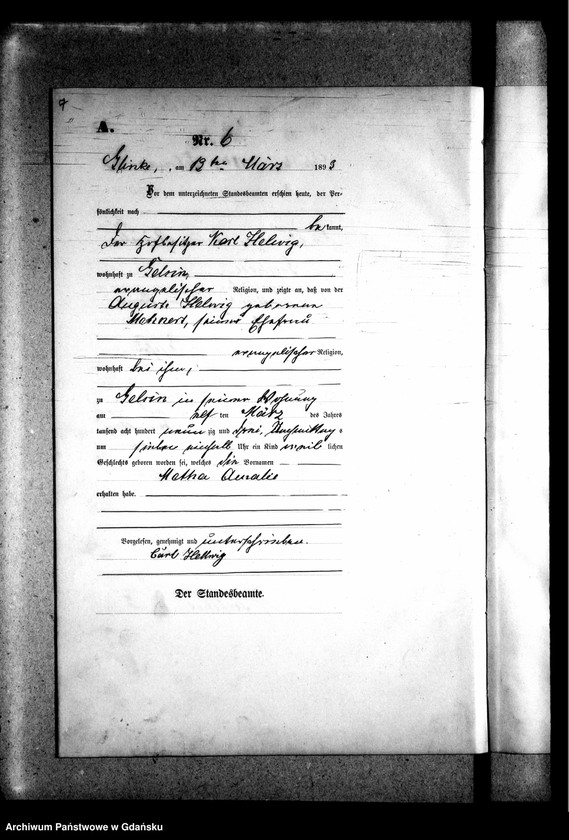 7
A.
Nr. 6
am 13ten März 1893
Vor dem unterzeichneten Standesbeamten erschien heute, der Per-
sönlichkeit nach
bekannt,
der Hofbesitzer Karl Helwig,
wohnhaft zu
evangelischer Religion, und zeigte an, daß von der
Auguste Helwig geborene
seiner Ehefrau
evangelischer Religion,
wohnhaft bei ihm,
zu in seiner Wohnung
am elften März des Jahres
tausend acht hundert neunzig und drei, Nachmittags
um sieben einhalb Uhr ein Kind weiblichen
Geschlechts geboren worden sei, welches die Vornamen
Amalie
erhalten habe.
Vorgelesen, genehmigt und unterschrieben.
Carl Hellwig
Der Standesbeamte.
Archiwum Państwowe w Gdańsku